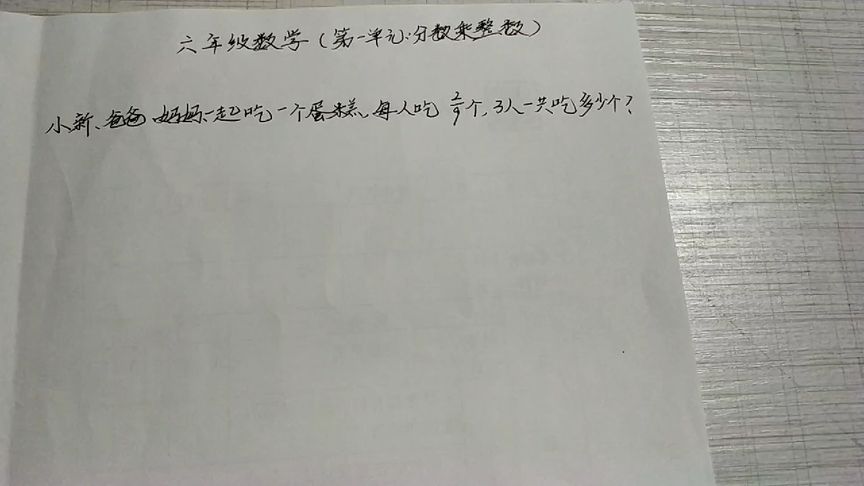 六年级数学（第一单元:分数乘整数）
小新、爸爸、妈妈一起吃一个蛋糕,每人吃 2/9 个,3人一共吃多少个?